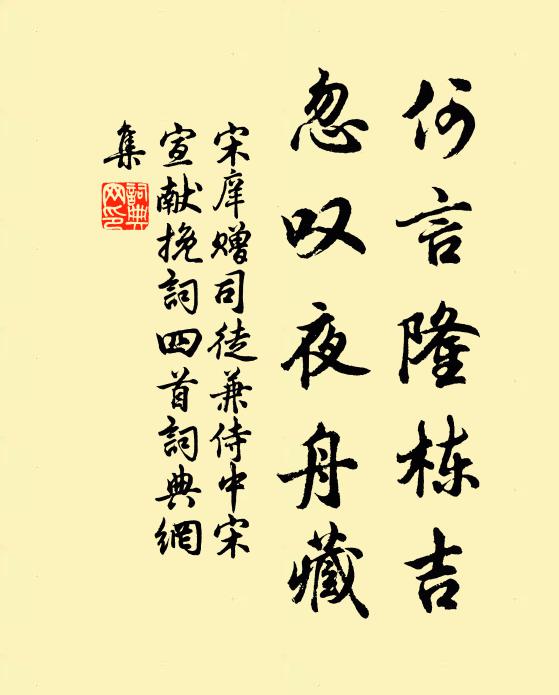 何言隆栋吉
忽叹夜舟藏
宋庠赠司徒兼侍中宋
宣献挽詞四首詞典網
集
詞典网印